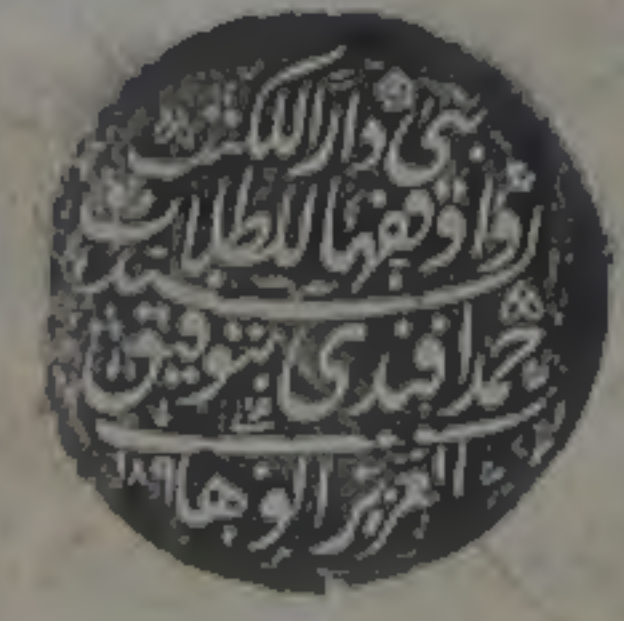 بنى دار الكتب
واوقفها للطلاب
السيد
محمد افندى بتوفيق
العزيز الوهاب